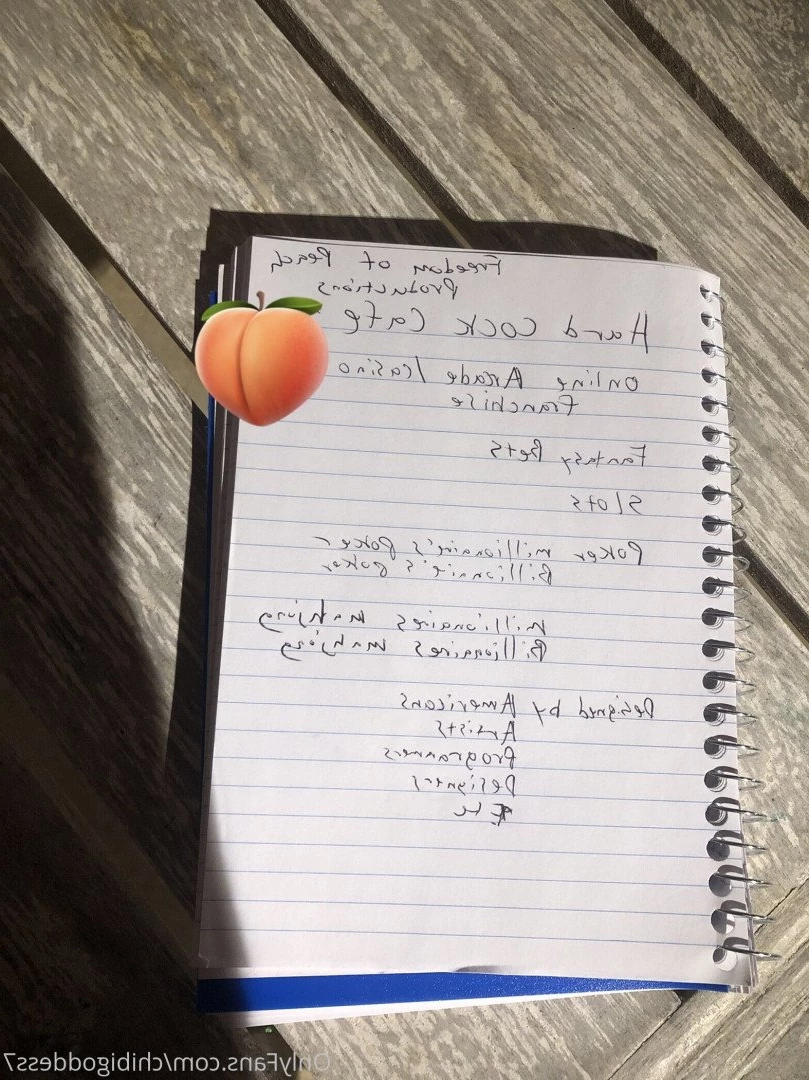 Freedom of Peach
Productions
Hard Cock Cafe
Online Arcade / Casino
Franchise
Fantasy Bets
Slots
Poker Millionaire's Poker
Billionaire's Poker
Millionaires Mahjong
Billionaires Mahjong
Designed by Americans
Artists
Programmers
Designers
Etc
OnlyFans.com/chibigoddess7